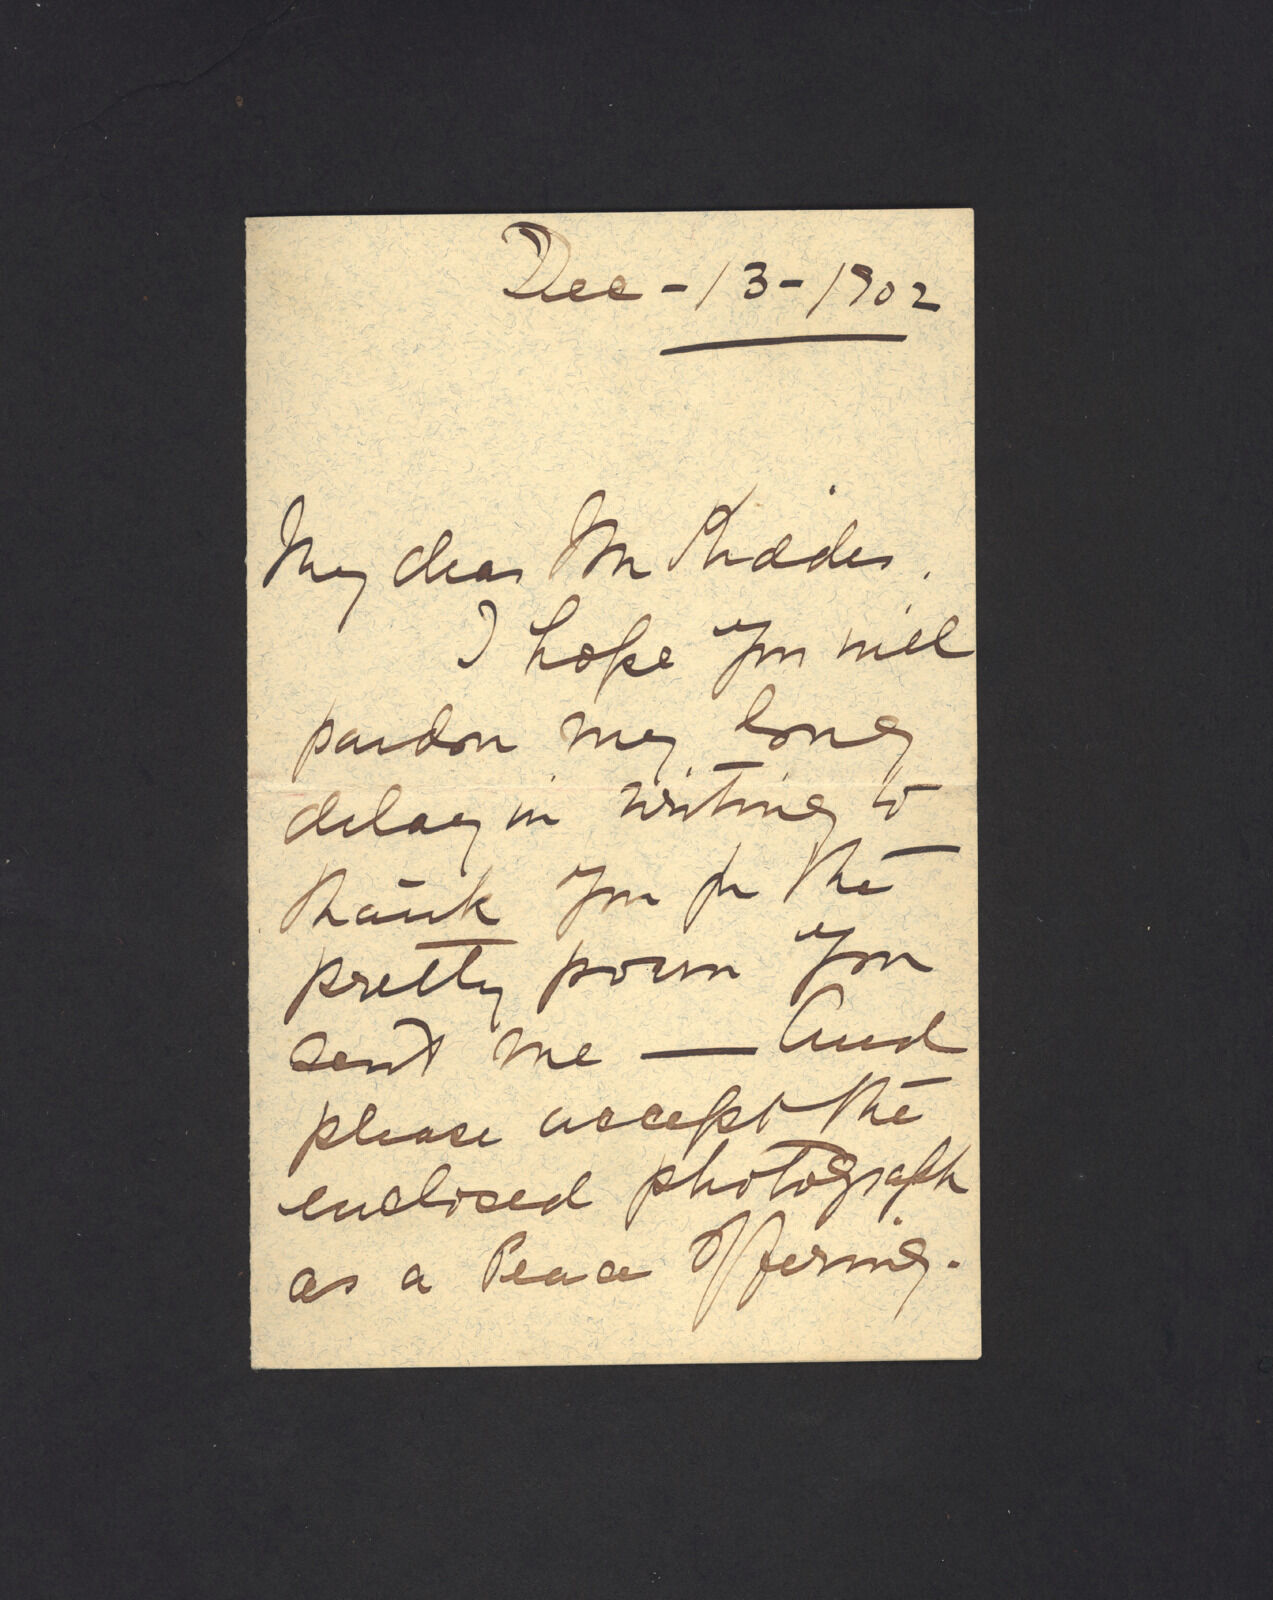 Dec - 13 - 1902
My dear Mr
I hope you will
pardon my long
delay in writing to
thank you for the
pretty poem you
sent me — And
please accept the
enclosed photograph
as a Peace Offering.